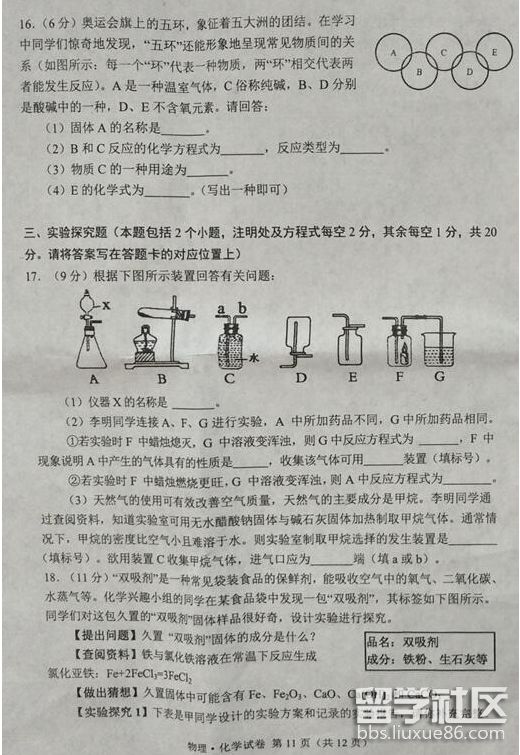 16.（6分）奥运会旗上的五环，象征着五大洲的团结。在学习
中同学们惊奇地发现，“五环”还能形象地呈现常见物质间的关
系（如图所示：每一个“环”代表一种物质，两“环”相交代表两
者能发生反应）。A是一种温室气体，C俗称纯碱，B、D分别
是酸碱中的一种，D、E不含氧元素。请回答：
A B C D E
（1）固体A的名称是______。
（2）B和C反应的化学方程式为______，反应类型为______。
（3）物质C的一种用途为______。
（4）E的化学式为______。（写出一种即可）
三、实验探究题（本题包括2个小题，注明处及方程式每空2分，其余每空1分，共20
分。请将答案写在答题卡的对应位置上）
17.（9分）根据下图所示装置回答有关问题：
X a b 水
A B C D E F G
（1）仪器X的名称是______。
（2）李明同学连接A、F、G进行实验，A中所加药品不同，G中所加药品相同。
①若实验时F中蜡烛熄灭，G中溶液变浑浊，则G中反应方程式为______，F中
现象说明A中产生的气体具有的性质是______，收集该气体可用______装置（填标号）。
②若实验时F中蜡烛燃烧更旺，G中溶液变浑浊，则A中反应方程式为______。
（3）天然气的使用可有效改善空气质量，天然气的主要成分是甲烷。李明同学通
过查阅资料，知道实验室可用无水醋酸钠固体与碱石灰固体加热制取甲烷气体。通常情
况下，甲烷的密度比空气小且难溶于水。则实验室制取甲烷选择的发生装置是______
（填标号）。欲用装置C收集甲烷气体，进气口应为______端（填a或b）。
18.（11分）“双吸剂”是一种常见袋装食品的保鲜剂，能吸收空气中的氧气、二氧化碳、
水蒸气等。化学兴趣小组的同学在某食品袋中发现一包“双吸剂”，其标签如下图所示。
同学们对这包久置的“双吸剂”固体样品很好奇，设计实验进行探究。
【提出问题】久置“双吸剂”固体的成分是什么？
【查阅资料】铁与氯化铁溶液在常温下反应生成
氯化亚铁：Fe+2FeCl₃=3FeCl₂
品名：双吸剂
成分：铁粉、生石灰等
【做出猜想】久置固体中可能含有Fe、Fe₂O₃、CaO、
【实验探究1】下表是甲同学设计的实验方案和记录的
物理·化学试卷 第11页（共12页）
留学社区
bbs.liuxue86.com